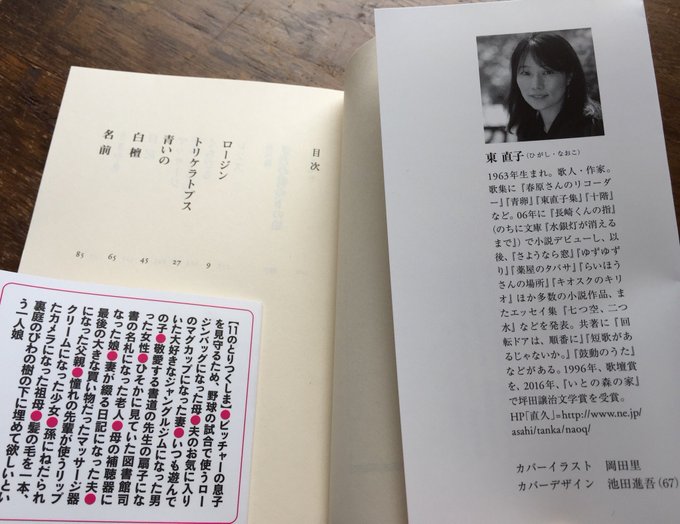 目次
ロージン
トリケラトプス
青いの
白檀
名前
9
27
45
65
85
【11のとりつくしま】●ピッチャーの息子
を見守るため、野球の試合で使うロー
ジンバッグになった母●夫のお気に入り
のマグカップになった妻●いつも遊んで
いた大好きなジャングルジムになった男
の子●敬愛する書道の先生の扇子にな
った女性●ひそかに見ていた図書館司
書の名札になった老人●母の補聴器に
なった娘●妻が綴る日記になった夫●
最後の大きな買い物だったマッサージ器
になった父親●憧れの先輩が使うリップ
クリームになった少女●孫にねだられ
たカメラになった祖母●髪の毛を一本、
裏庭のびわの樹の下に埋めて欲しいとい
う一人娘
東 直子(ひがし・なおこ)
1963年生まれ。歌人・作家。
歌集に『春原さんのリコーダ
ー』『青卵』『東直子集』『十階』
など。06年に『長崎くんの指』
(のちに文庫『水銀灯が消える
まで』)で小説デビューし、以
後、『さようなら窓』『ゆずゆず
り』『薬屋のタバサ』『らいほう
さんの場所』『キオスクのキリ
オ』ほか多数の小説作品、ま
たエッセイ集『七つ空、二つ
水』などを発表。共著に『回
転ドアは、順番に』『短歌があ
るじゃないか。』『鼓動のうた』
などがある。1996年、歌壇賞
を、2016年、『いとの森の家』
で坪田譲治文学賞を受賞。
HP「直久」=http://www.ne.jp/
asahi/tanka/naoq/
カバーイラスト 岡田里
カバーデザイン 池田進吾(67)